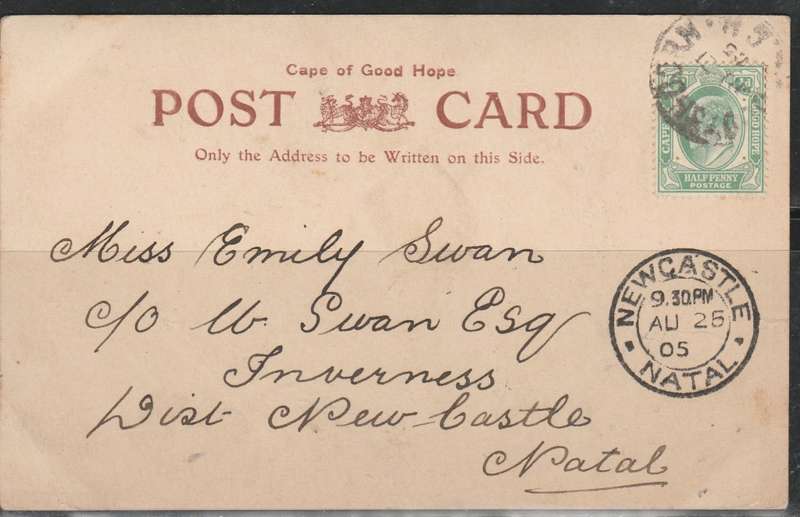 Cape of Good Hope
POST CARD
Only the Address to be Written on this Side.
CAPE
GOOD HOPE
HALFPENNY
POSTAGE
Miss Emily Swan
c/o W Swan Esq
Inverness
Dist New Castle
Natal
NEWCASTLE
9.30PM
AU 25
05
NATAL